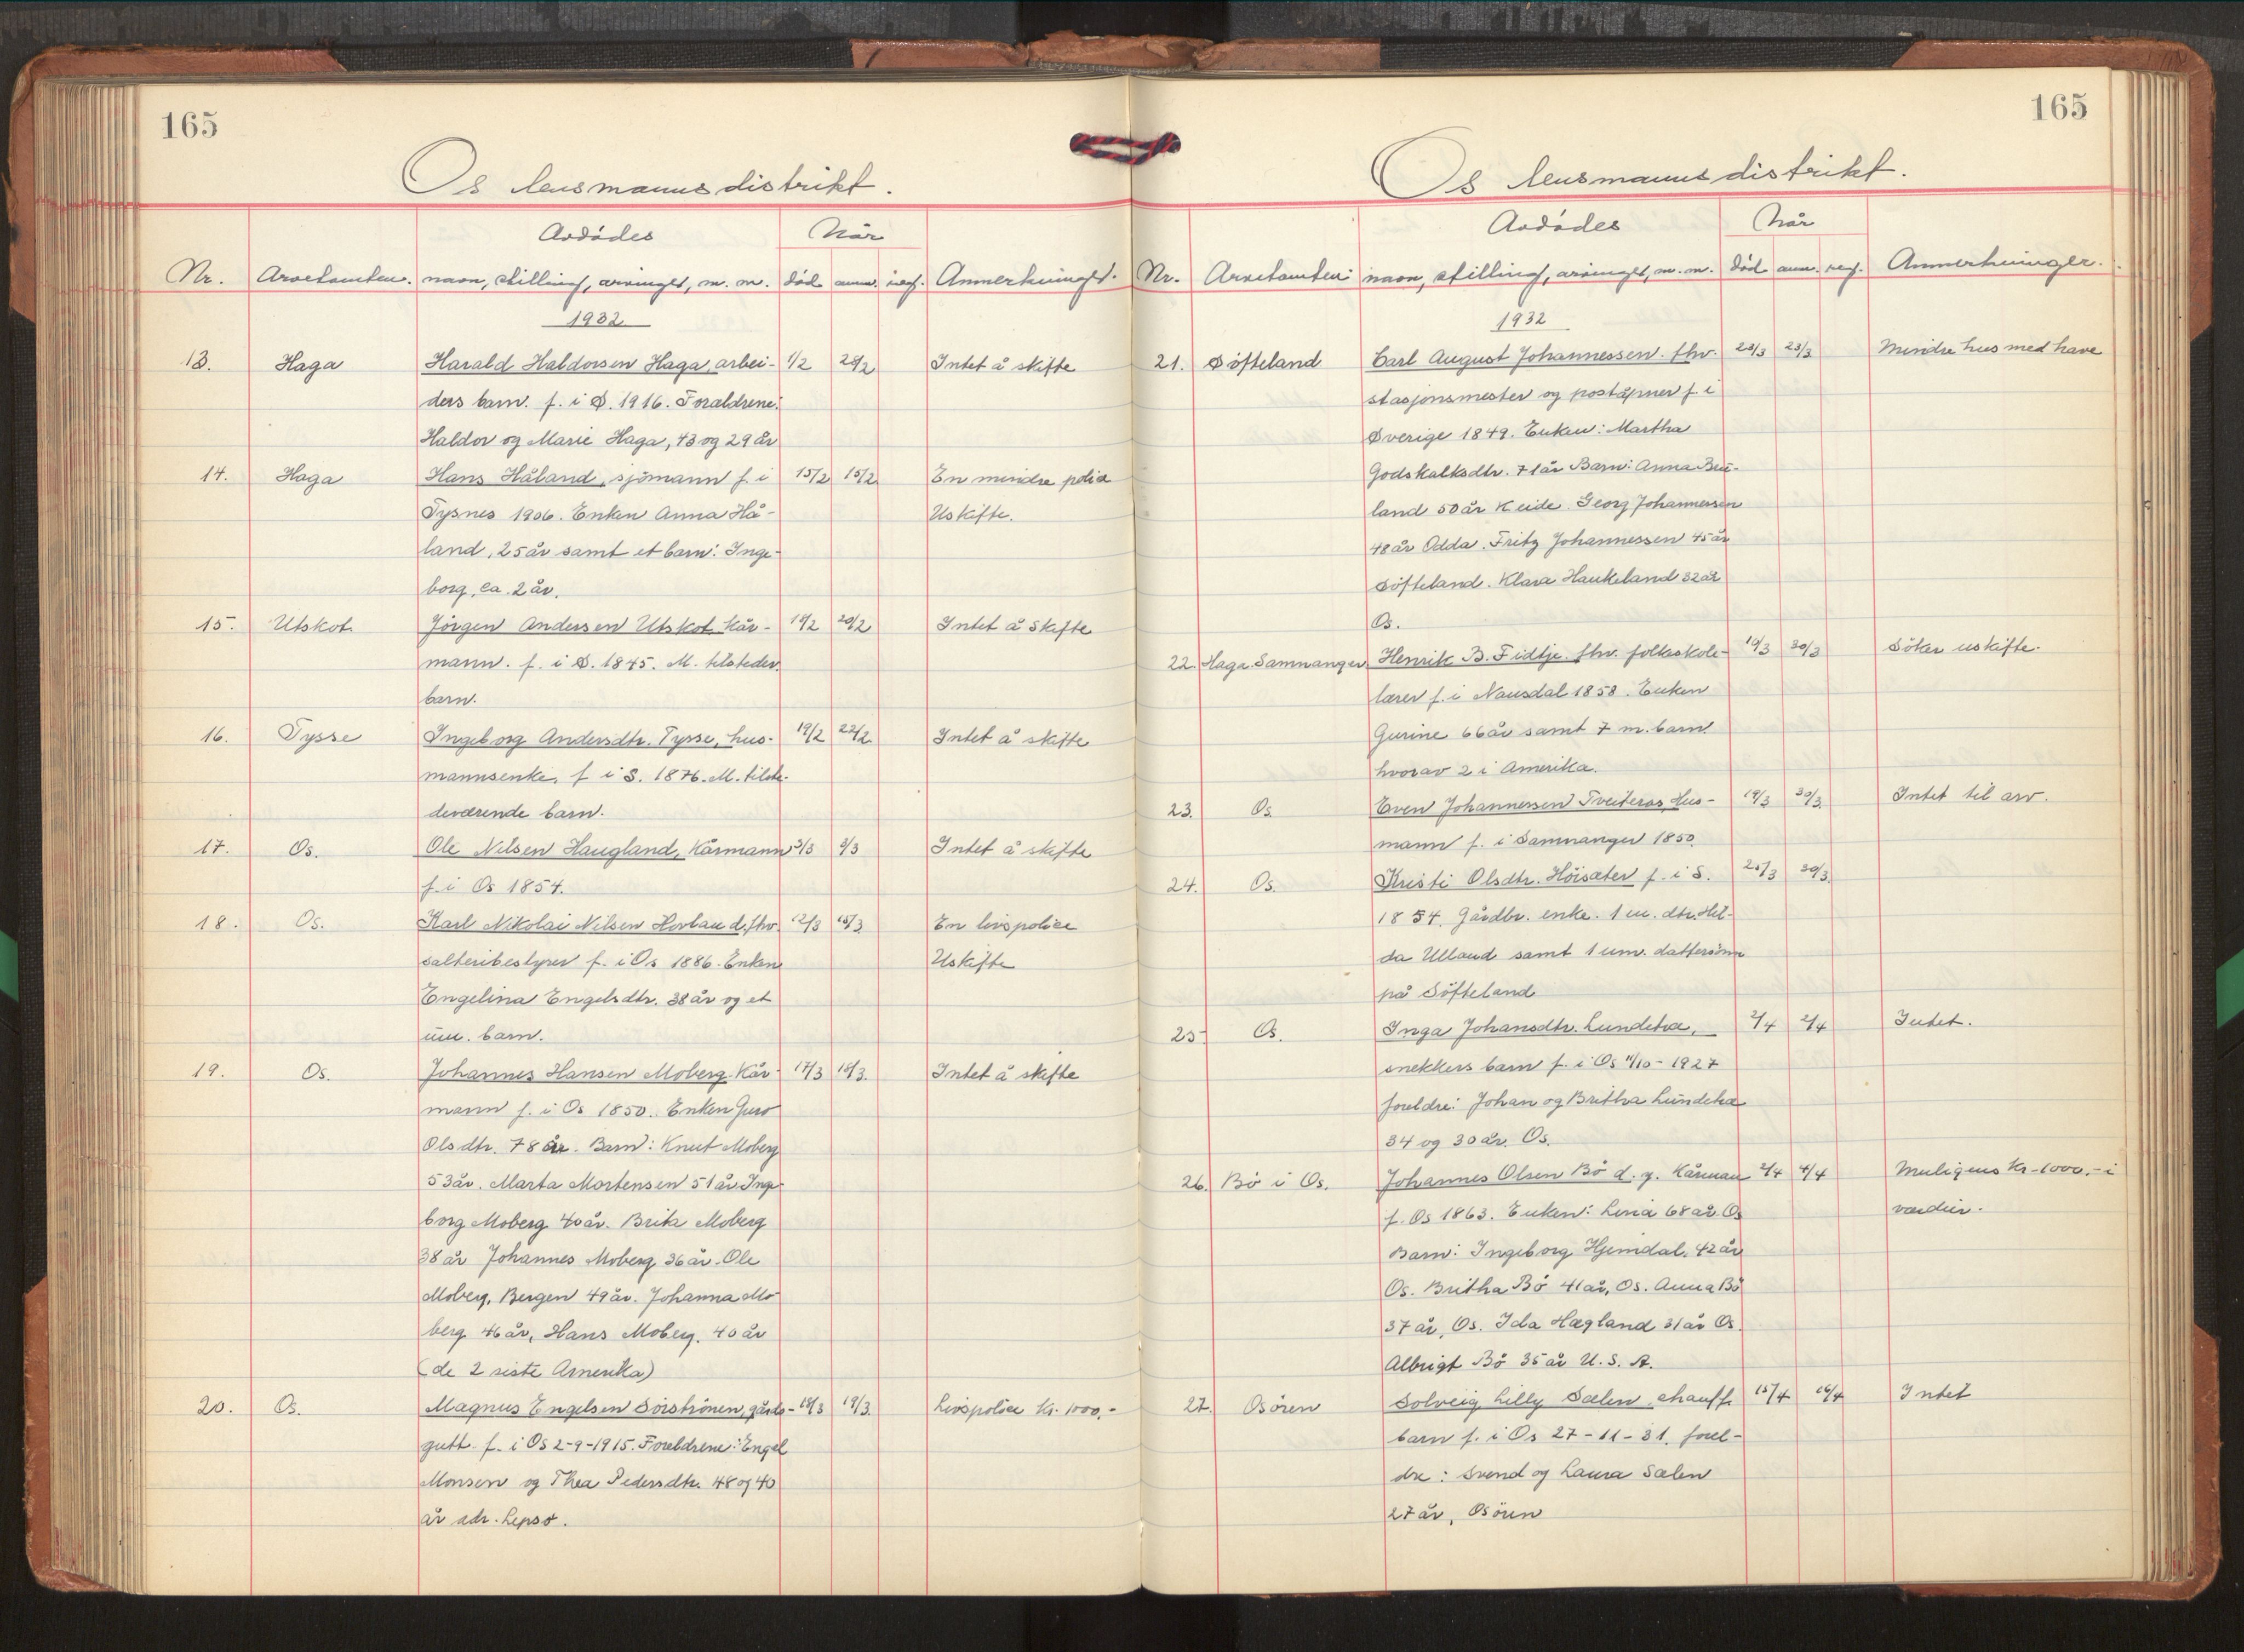 165
Os lensmannsdistrikt.
Avdødes
Når
Nr. Arvetomten. navn, stilling, arvinger, m. m. død anm. reg. Anmerkninger.
1932
13. Haga Harald Haldorsen Haga, arbei- 1/2 28/2 Intet å skifte
ders barn. f. i S. 1916. Foreldrene:
Haldor og Marie Haga, 43 og 29 år
14. Haga Hans Håland, sjømann f. i 15/2 15/2 En mindre police
Tysnes 1906. Enken Anna Hå- Uskifte.
land, 25 år samt et barn: Inge-
borg, ca. 2 år.
15. Utskot. Jörgen Andersen Utskot kår- 19/2 20/2 Intet å skifte
mann. f. i S. 1845. M. tilsteder.
barn.
16. Tysse Ingeborg Andersdtr. Tysse, hus- 19/2 22/2 Intet å skifte
mannsenke, f i S. 1876. M. tilste-
deværende barn.
17. Os. Ole Nilsen Haugland, Kårmann 3/3 9/3 Intet å skifte
f. i Os 1854.
18. Os. Karl Nikolai Nilsen Hovland, fhv. 12/3 15/3 En livspolice
salteribestyrer f. i Os 1886. Enken Uskifte
Engelina Engelsdtr. 38 år og et
um. barn.
19. Os. Johannes Hansen Moberg. Kår- 17/3 18/3. Intet å skifte
mann f. i Os 1850. Enken Guro
Olsdtr. 78 år. Barn: Knut Moberg
53 år. Marta Mortensen 51 år. Inge-
borg Moberg 40 år. Brita Moberg
38 år Johannes Moberg 36 år. Ole
Moberg, Bergen 49 år. Johanna Mo-
berg 46 år, Hans Moberg. 40 år
(de 2 siste Amerika)
20. Os. Magnus Engelsen Sörströnen, gårds- 18/3 19/3. Livspolice kr. 1000,-
gutt. f. i Os 2-9-1915. Foreldrene: Engel
Monsen og Thea Pedersdtr. 48 og 40
år adr. Lepsö.
165
Os lensmannsdistrikt.
Avdødes
Når
Nr. Arvetomten navn, stilling, arvinger, m. m. død anm. reg. Anmerkninger.
1932
21. Söfteland Carl August Johannessen. fhv. 23/3 23/3 Mindre hus med have
stasjonsmester og poståpner f. i
Sverige 1849. Enken: Martha
Godskalksdtr. 71 år Barn: Anna
land 50 år Georg Johannessen
48 år Odda. Fritz Johannessen 45 år
Söfteland. Klara Haukeland 32 år
Os.
22. Haga. Samnanger Henrik B. Fidtje. fhv. folkeskole- 19/3 30/3 Söker uskifte.
lærer f. i Nausdal 1858. Enken
Gurine 66 år samt 7 m. barn
hvorav 2 i Amerika.
23. Os. Even Johannessen Tveiterås, Hus- 19/3 30/3 Intet til arv.
mann f. i Samnanger 1850.
24. Os. Kristi Olsdtr. Höisæter f. i S. 25/3 30/3.
1854. Gårdbr. enke. 1 m. dtr. Hil-
da Ulland samt 1 um. dattersönn
på Söfteland
25. Os. Inga Johansdtr. Lundetræ, 2/4 2/4 Intet.
snekkers barn f. i Os 11/10-1927
foreldre: Johan og Britha Lundetræ
34 og 30 år. Os.
26. Bö i Os. Johannes Olsen Bö d. y. Kårman 2/4 4/4 Muligens kr. 1000,- i
f. Os 1863. Enken: Lina 68 år. Os verdier.
Barn: Ingeborg Hjemdal. 42 år
Os. Britha Bö 41 år, Os. Anna Bö
37 år, Os. Ida Hægland 31 år Os.
Albrigt Bö 35 år U. S. A.
27. Osören Solveig Lilly Sælen, chauff. 15/4 16/4 Intet
barn f. i Os 27-11-31. forel-
dre: Svend og Laura Sælen
27 år, Osören